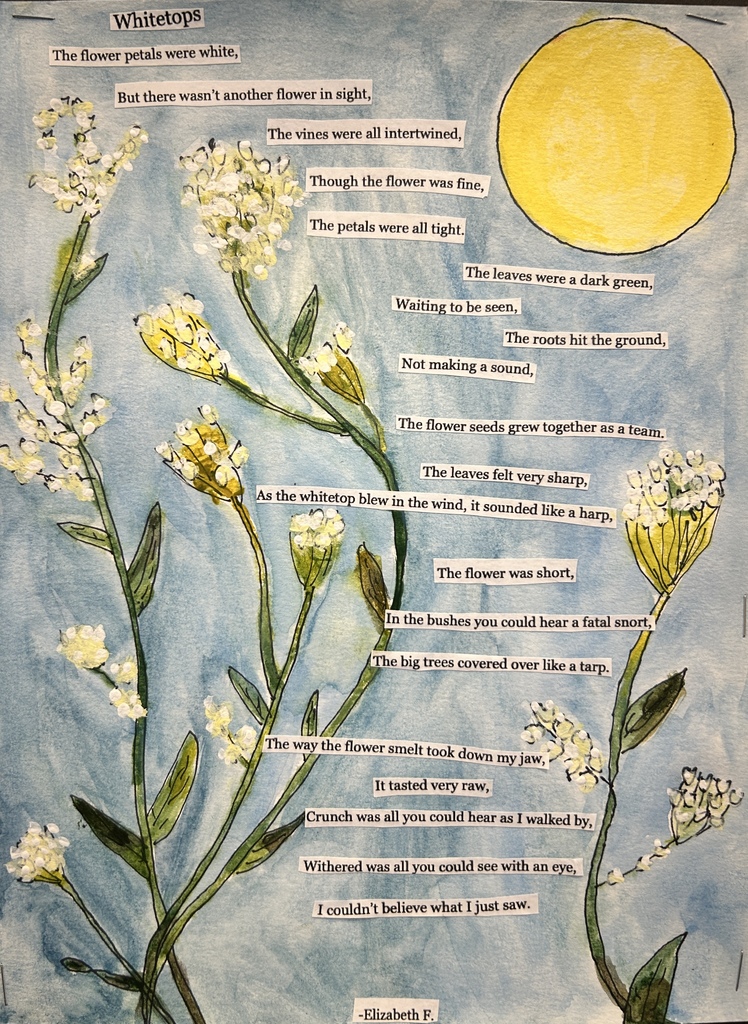 Whitetops
The flower petals were white,
But there wasn't another flower in sight,
The vines were all intertwined,
Though the flower was fine,
The petals were all tight.
The leaves were a dark green,
Waiting to be seen,
The roots hit the ground,
Not making a sound,
The flower seeds grew together as a team.
The leaves felt very sharp,
As the whitetop blew in the wind, it sounded like a harp,
The flower was short,
In the bushes you could hear a fatal snort,
The big trees covered over like a tarp.
The way the flower smelt took down my jaw,
It tasted very raw,
Crunch was all you could hear as I walked by,
Withered was all you could see with an eye,
I couldn't believe what I just saw.
-Elizabeth F.